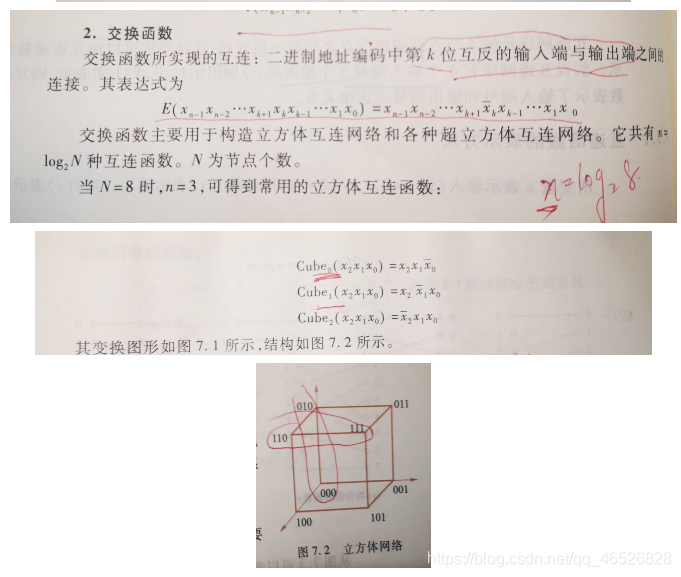 2. 交换函数
交换函数所实现的互连：二进制地址编码中第 k 位互反的输入端与输出端之间的
连接。其表达式为
E(xₙ₋₁xₙ₋₂⋯xₖ₊₁xₖxₖ₋₁⋯x₁x₀) = xₙ₋₁xₙ₋₂⋯xₖ₊₁x̄ₖxₖ₋₁⋯x₁x₀
交换函数主要用于构造立方体互连网络和各种超立方体互连网络。它共有 n=
log₂N 种互连函数。N 为节点个数。
当 N=8 时，n=3，可得到常用的立方体互连函数：
n=log₂8.
Cube₀(x₂x₁x₀) = x₂x₁x̄₀
Cube₁(x₂x₁x₀) = x₂x̄₁x₀
Cube₂(x₂x₁x₀) = x̄₂x₁x₀
其变换图形如图 7.1 所示，结构如图 7.2 所示。
010
011
110
111
000
001
100
101
要
图 7.2 立方体网络
https://blog.csdn.net/qq_46526828